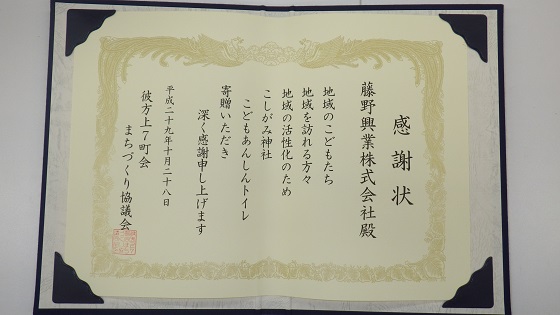 感謝状
藤野興業株式会社殿
地域のこどもたち
地域を訪れる方々
地域の活性化のため
こしがみ神社
こどもあんしんトイレ
寄贈いただき
深く感謝申し上げます
平成二十九年十月二十八日
彼方上７町会
まちづくり協議会